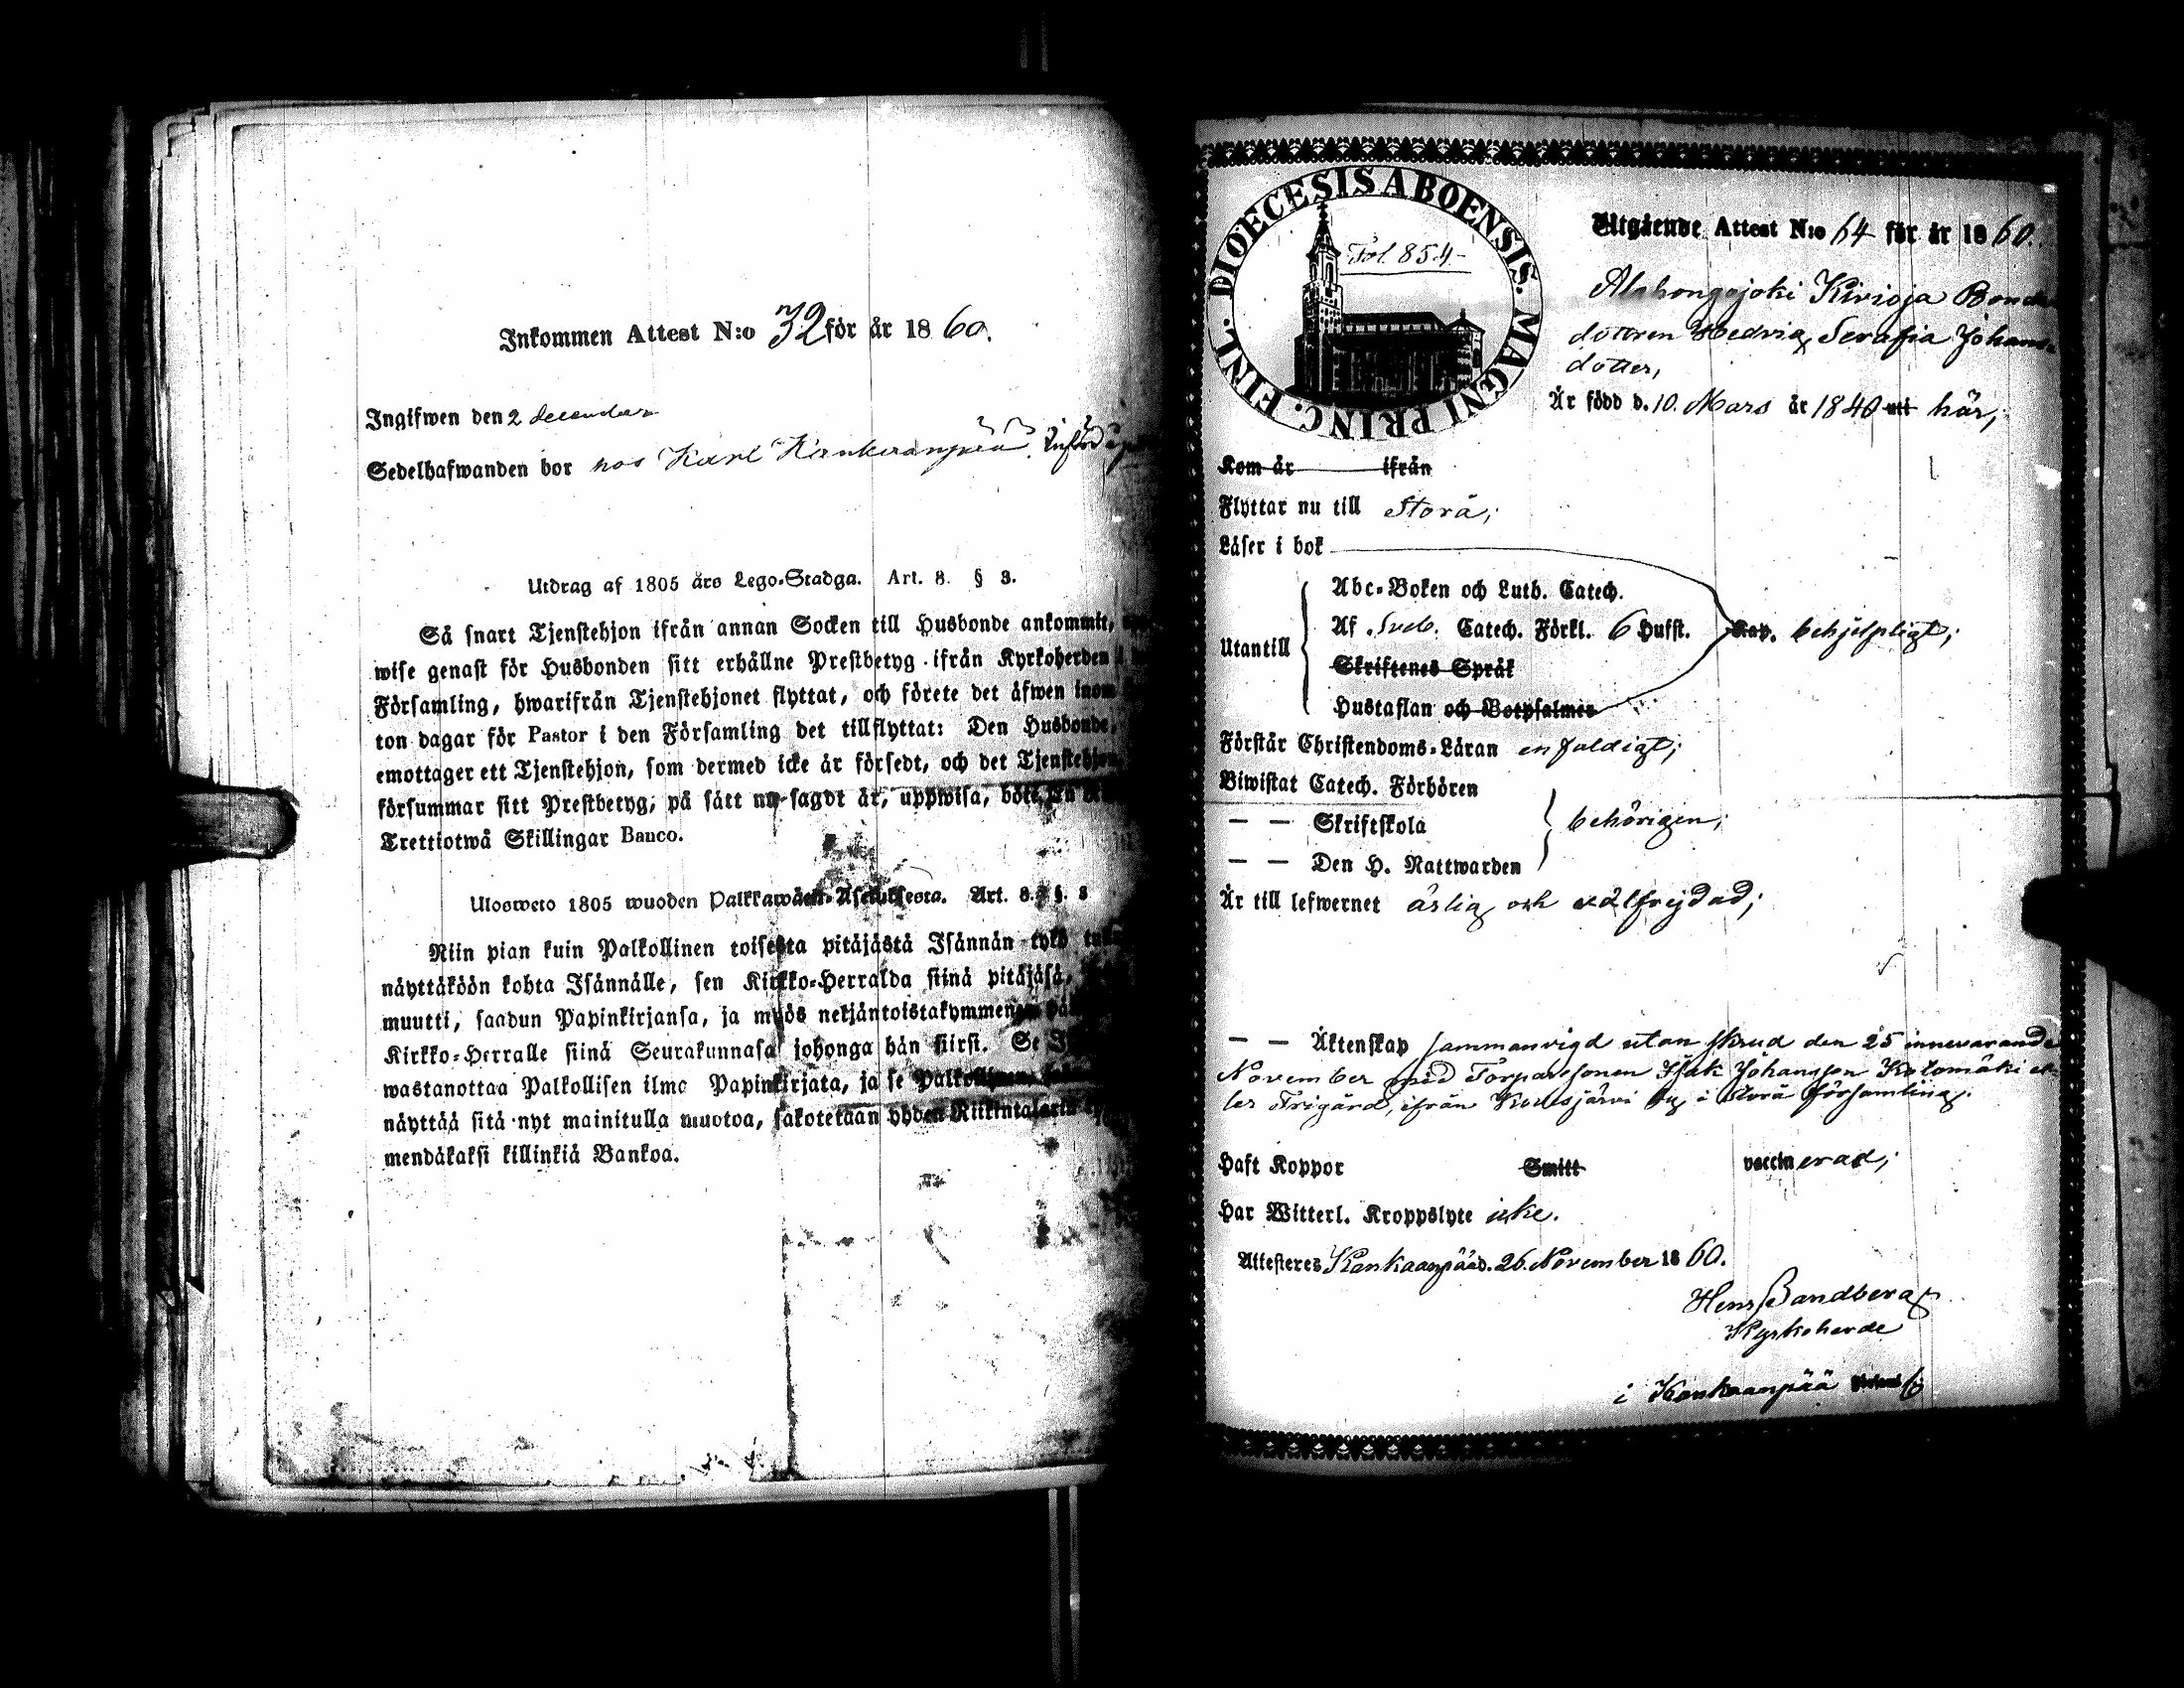 Inkommen Attest N:o 32 för år 1860.
Ingifwen den 2 december
Sedelhafwanden bor hos Karl
Utdrag af 1805 års Lego-Stadga. Art. 8. § 3.
Så snart Tjenstehjon ifrån annan Socken till Husbonde ankommit,
wise genast för Husbonden sitt erhållne Prestbetyg ifrån Kyrkoherden i
Församling, hwarifrån Tjenstehjonet flyttat, och förete det äfwen inom
ton dagar för Pastor i den Församling det tillflyttat: Den Husbonde,
emottager ett Tjenstehjon, som dermed icke är försedt, och det Tjenstehjon,
försummar sitt Prestbetyg, på sätt nu sagdt är, uppwisa,
Trettiotwå Skillingar Banco.
Ulosweto 1805 wuoden Palkkawäen-Asetuksesta. Art. 8. §. 3
Niin pian kuin Palkollinen toisesta pitäjästä Isännän tykö
näyttäköön kohta Isännälle, sen Kirkko-Herralda siinä pitäjäsä,
muutti, saadun Papinkirjansa, ja myös neljäntoistakymmenen
Kirkko-Herralle siinä Seurakunnasa johonga hän siirsi. Se
wastanottaa Palkollisen ilma Papinkirjata, ja se
näyttää sitä nyt mainitulla muotoa, sakotetaan yhden Riikintalarin
mendäkaksi killinkiä Bankoa.
DIOECESIS ABOENSIS. MAGNI PRINC. FINL.
Fol. 854.-
Utgående Attest N:o 64 för år 1860.
Alahongojoki Kivioja Bonde
dottren Hedvig Serafia Johans-
dotter,
Är född d. 10. Mars år 1840 uti här;
Kom år ifrån
Flyttar nu till Storå;
Läser i bok
Abc-Boken och Luth. Catech.
Utantill
Af Sveb. Catech. Förkl. 6 Hufst. Kap. behjelpligt;
Skriftenes Språk
Hustaflan och Botpsalmer
Förstår Christendoms-Läran enfaldigt;
Biwistat Catech. Förhören
— — Skriftskola behörigen;
— — Den H. Nattwarden
Är till lefwernet ärlig och välfrejdad;
— — Äktenskap sammanvigd utan skrud den 25 innevarande
November med Torparesonen Isak Johansson Kolomäki el-
ler Frigård, ifrån by i Storå församling.
Haft Koppor Smitt vaccinerad;
Har Witterl. Kroppslyte icke.
Attesteres Kankaanpää d. 26. November 1860.
Sandberg
Kyrkoherde
i Kankaanpää